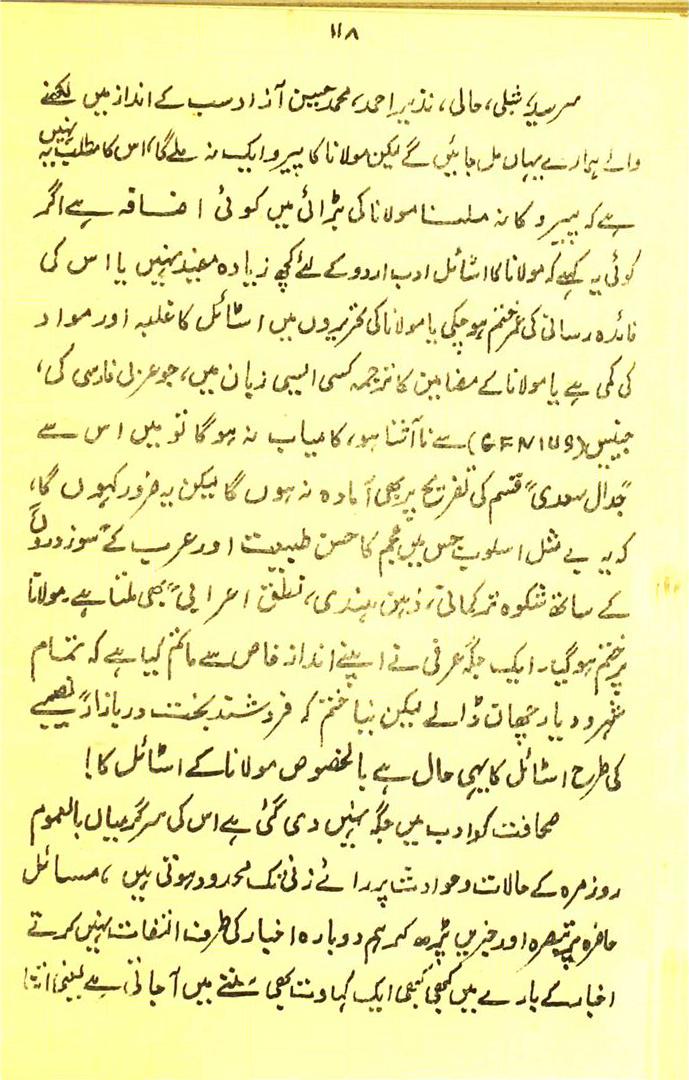 ۱۱۸
سرسید، شبلی، حالی، نذیر احمد، محمد حسین آزاد سب کے انداز میں لکھنے
والے ہمارے یہاں مل جائیں گے لیکن مولانا کا پیرو ایک نہ ملے گا، اس کا مطلب یہ نہیں
ہے کہ پیرو کا نہ ملنا مولانا کی بڑائی میں کوئی اضافہ ہے اگر
کوئی یہ کہے کہ مولانا کا اسٹائل ادب اردو کے لئے کچھ زیادہ مفید نہیں یا اس کی
فائدہ رسانی کی عمر ختم ہو چکی یا مولانا کی تحریروں میں اسٹائل کا غلبہ اور مواد
کی کمی ہے یا مولانا کے مضامین کا ترجمہ کسی ایسی زبان میں، جو عربی فارسی کی،
جینیس (GENIUS) سے نا آشنا ہو، کامیاب نہ ہو گا تو میں اس سے
"جدال سعدی" قسم کی تفریح پر بھی آمادہ نہ ہوں گا لیکن یہ ضرور کہوں گا،
کہ یہ بے مثل اسلوب جس میں عجم کا حسن طبیعت اور عرب کے "سوز دروں"
کے ساتھ شکوہ ترکمانی، ذہن ہندی، نطق اعرابی" بھی ملتا ہے۔ مولانا
پر ختم ہو گیا۔ ایک جگہ عرفی نے اپنے انداز خاص سے ماتم کیا ہے کہ تمام
شہر و دیار چھان ڈالے لیکن نیافتم کہ فروشند بخت در بازار" نصیبے
کی طرح اسٹائل کا یہی حال ہے بالخصوص مولانا کے اسٹائل کا!
صحافت کو ادب میں جگہ نہیں دی گئی ہے اس کی سرگرمیاں بالعموم
روزمرہ کے حالات و حوادث پر رائے زنی تک محدود ہوتی ہیں، مسائل
حاضرہ پر تبصرہ اور خبریں پڑھ کر ہم دوبارہ اخبار کی طرف التفات نہیں کرتے
اخبار کے بارے میں کبھی کبھی ایک کہاوت بھی سننے میں آ جاتی ہے یعنی اتنا